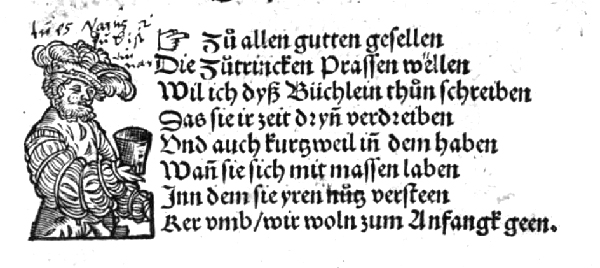 ☞ Zů allen gutten gesellen
Die Zůtrincken Prassen wöllen
Wil ich dyß Büchlein thůn schreiben
Das sie ir zeit dryñ verdreiben
Vnd auch kurtzweil iñ dem haben
Wañ sie sich mit massen laben
Inn dem sie yren nůtz versteen
Ker vmb/wir woln zum Anfangk geen.